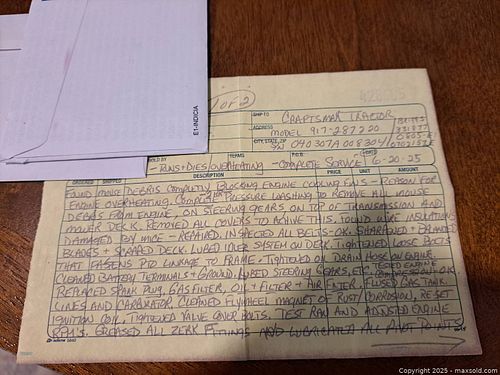 E1-INDICIA
1 of 2
SHIP TO CRAFTSMAN TRACTOR
ADDRESS MODEL 917-287220
CITY, STATE, ZIP S/N 040307A008304
SOLD BY TERMS F.O.B. DATE
-RUNS + DIES/OVERHEATING - COMPLETE SERVICE 6-20-25
ORDERED SHIPPED DESCRIPTION PRICE UNIT AMOUNT
FOUND MOUSE DEBRIS COMPLETLY BLOCKING ENGINE COOLING FINS - REASON FOR
ENGINE OVERHEATING. COMPLETE PRESSURE WASHING TO REMOVE ALL MOUSE
DEBRIS FROM ENGINE, ON STEERING GEARS, ON TOP OF TRANSMISSION AND
MOWER DECK. REMOVED ALL COVERS TO ACHIVE THIS. FOUND WIRE INSULATIONS
DAMAGED BY MICE - REPAIRED. INSPECTED ALL BELTS-OK. SHARPENED + BALANCED
BLADES + SCRAPED DECK. LUBED IDLER SYSTEM ON DECK. TIGHTENED LOOSE BOLTS
THAT FASTENS PTO LINKAGE TO FRAME. TIGHTENED OIL DRAIN HOSE ON ENGINE.
CLEANED BATTERY TERMINALS + GROUND. LUBED STEERING GEARS, ETC. TESTED ENGINE COMPRESSION-OK.
REPLACED SPARK PLUG, GAS FILTER, OIL + FILTER + AIR FILTER. FLUSED GAS TANK,
LINES AND CARBURATOR. CLEANED FLYWHEEL MAGNET OF RUST/CORROSION, RE-SET
IGNITION COIL. TIGHTENED VALVE COVER BOLTS. TEST RAN AND ADJUSTED ENGINE
RPM'S. GREASED ALL ZERK FITTINGS AND LUBRICATED ALL PIVOT POINTS
adams
Copyright 2025 - maxsold.com